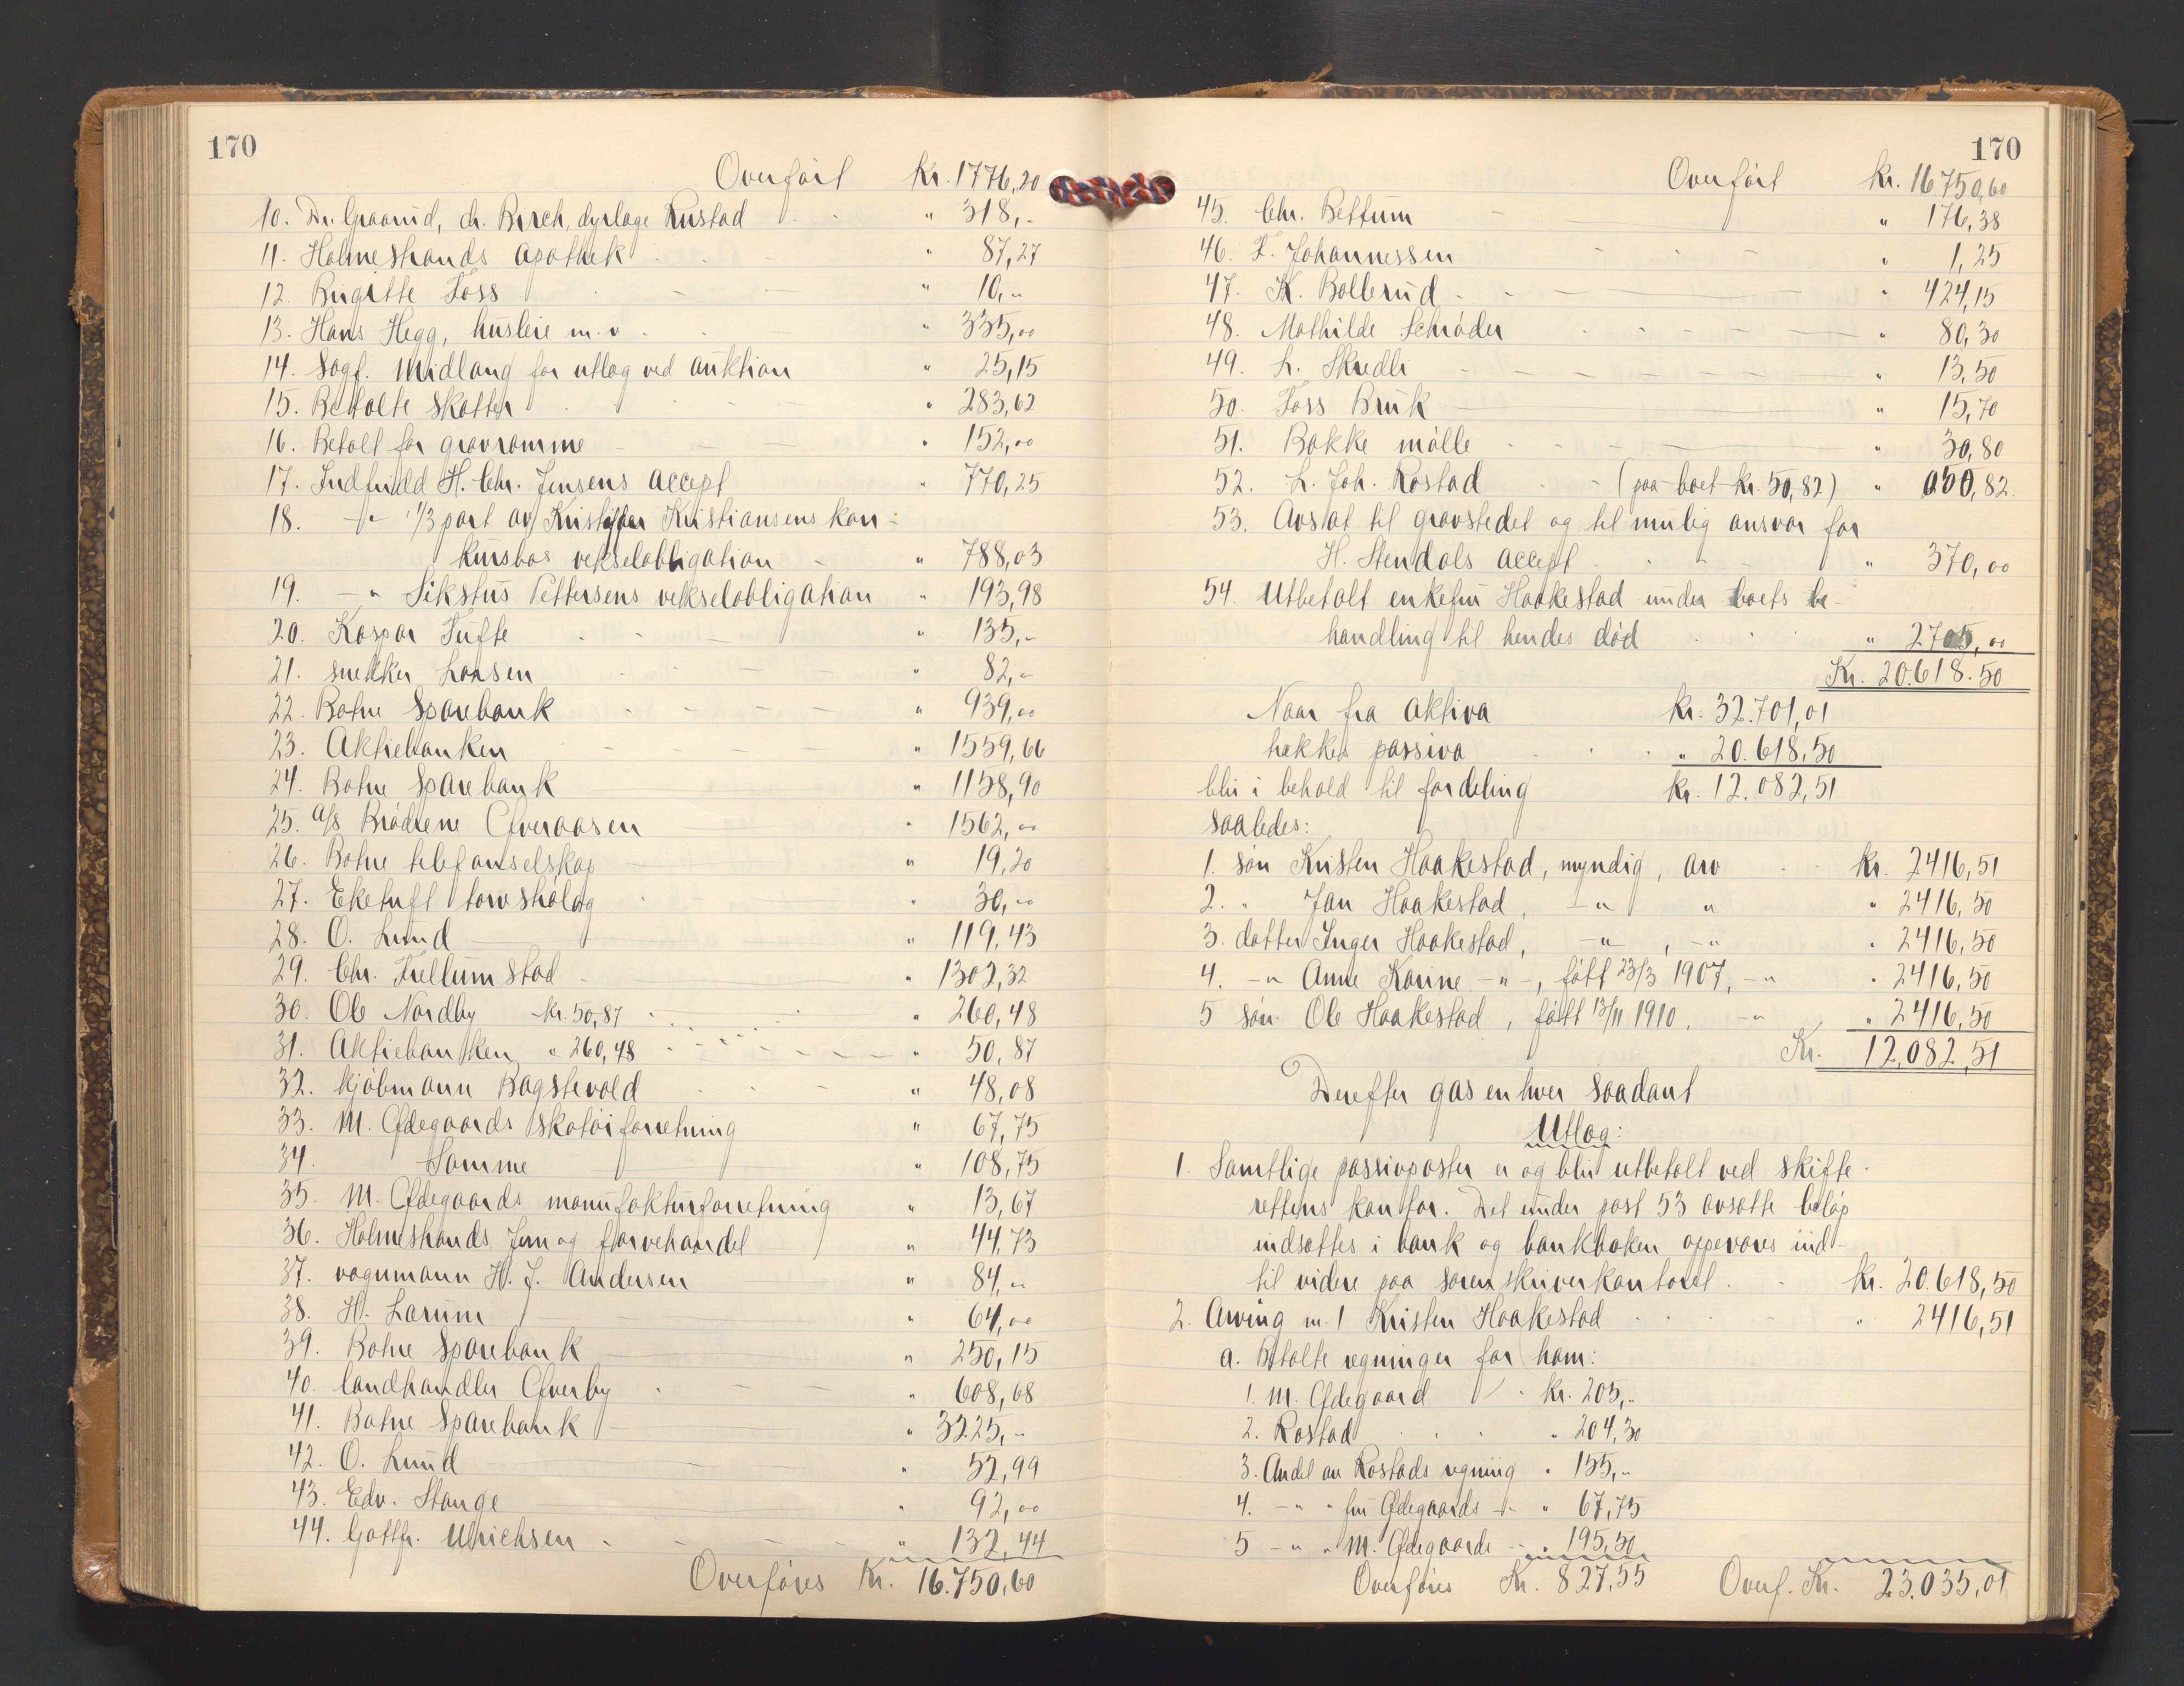 170
Overført kr. 1776,20
10. Dr. Graarud, dr. Birch, dyrlæge Rustad " 318,-
11. Holmestrands Apothek " 87,27
12. Birgitte Foss " 10,-
13. Hans Hegg, husleie m.v. " 335,00
14. Sagf. Midlang for utlæg ved auktion " 25,15
15. Betalte skatter " 283,62
16. Betalt for gravramme " 152,00
17. Indfridd H. Chr. Jensens accept " 770,25
18. -"- 1/3 part av Kristoffer Kristiansens kon-
kursbos vekselobligation " 788,03
19. -" Sikstus Pettersens vekselobligation " 193,98
20. Kaspar Tufte " 135,-
21. snekker Larsen " 82,-
22. Botne Sparebank " 939,00
23. Aktiebanken " 1559,66
24. Botne Sparebank " 1158,90
25. A/S Brødrene Øveraasen " 1562,00
26. Botne telefonselskap " 19,20
27. Eketuft torvstrølag " 30,00
28. O. Lund " 119,43
29. Chr. Frellumstad " 1302,32
30. Ole Nordby kr. 50,87 " 260,48
31. Aktiebanken " 260,48 " 50,87
32. kjøbmann Bagstevold " 48,08
33. M. Ødegaards skotøiforretning " 67,75
34. Samme " 108,75
35. M. Ødegaards manufakturforretning " 13,67
36. Holmestrands Jern og farvehandel " 44,73
37. vognmann H. J. Andersen " 84,-
38. H. Larum " 64,00
39. Botne Sparebank " 250,15
40. landhandler Øverby " 608,68
41. Botne Sparebank " 3225,-
42. O. Lund " 52,99
43. Edv. Stange " 92,00
44. Gottfr. Ulrichsen " 132,44
Overføres Kr. 16.750,60
170
Overført kr. 16750,60
45. Chr. Bettum " 176,38
46. F. Johannessen " 1,25
47. K. Bollerud " 424,15
48. Mathilde Schrøder " 80,30
49. L. Skredli " 13,50
50. Foss Bruk " 15,70
51. Bakke mølle " 30,80
52. L. Joh. Rostad (paa boet kr. 50,82) " 50,82
53. Avsat til gravstedet og til mulig ansvar for
H. Stendals accept " 370,00
54. Utbetalt enkefru Haakestad under boets be-
handling til hendes død " 2705,00
Kr. 20.618.50
Naar fra aktiva kr. 32.701,01
trekkes passiva " 20.618,50
blir i behold til fordeling kr. 12.082,51
saaledes:
1. søn Kristen Haakestad, myndig, arv kr. 2416,51
2. " Jan Haakestad, -" " " 2416,50
3. datter Inger Haakestad, -"-, -" " 2416,50
4. -" Anne Karine -"-, født 23/3 1907, -" " 2416,50
5 søn Ole Haakestad, født 13/11 1910, -" " 2416,50
Kr. 12.082,51
Derefter gøs enhver saadant
Utlæg:
1. Samtlige passivposter er og blir utbetalt ved skifte-
rettens kontor. Det under post 53 avsatte beløp
indsættes i bank og bankboken opbevares ind-
til videre paa sorenskriverkontoret. kr. 20.618,50
2. Arving nr. 1 Kristen Haakestad " 2416,51
a. Betalte regninger for ham:
1. M. Ødegaard kr. 205,-
2. Rostad " 204,30
3. Andel av Rostads regning " 155,-
4. -" " fru Ødegaards -"- " 67,75
5 -" " M. Ødegaards -"- " 195,50
Overføres Kr. 827,55 Overf. Kr. 23.035,01